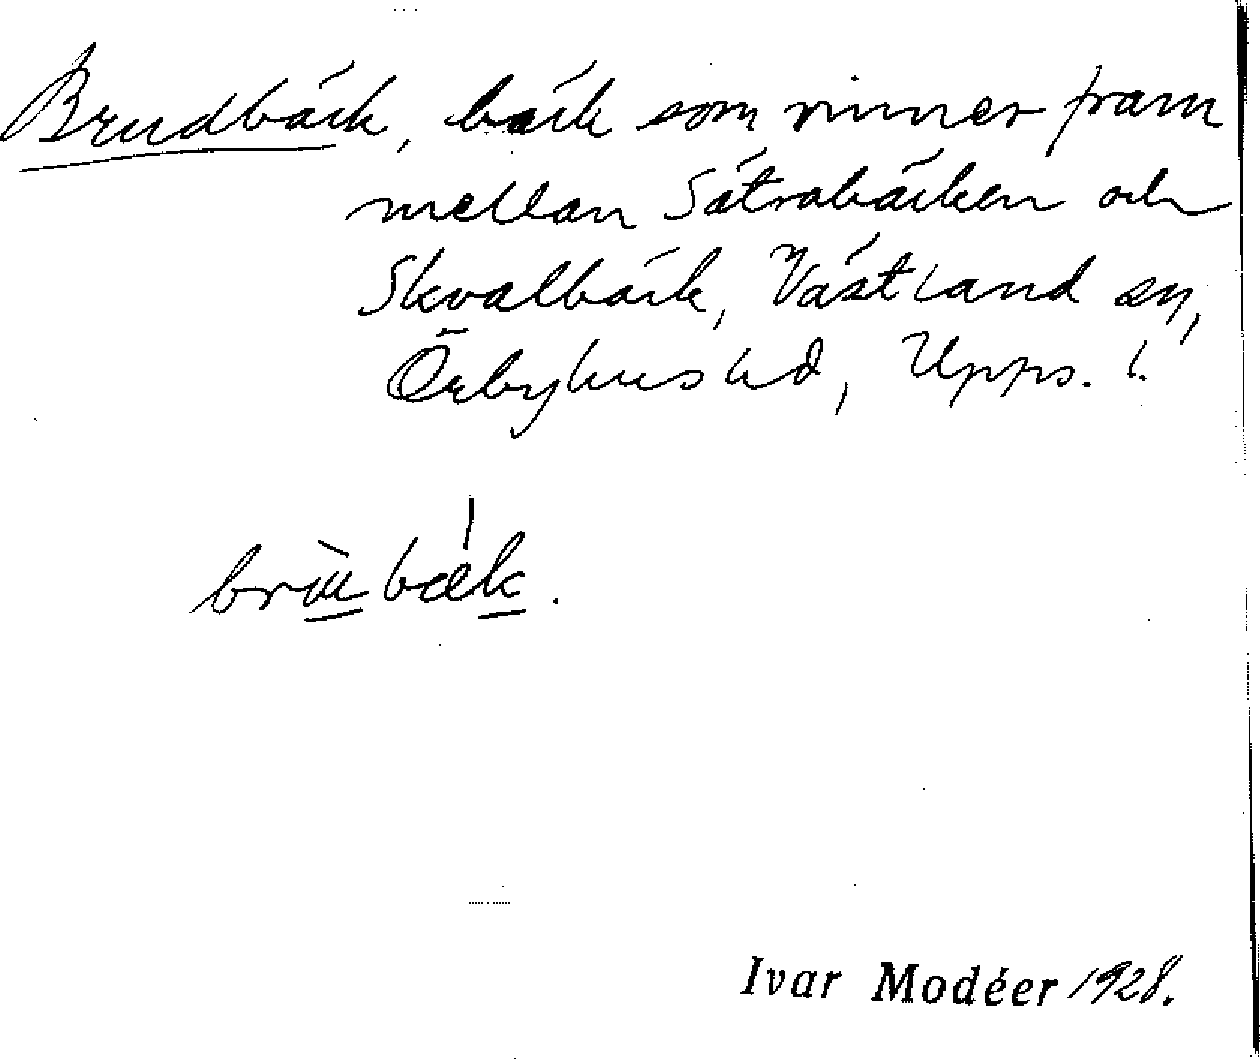 Brudbäck, bäck som rinner fram
mellan Sätrabäcken och
Skvalbäck, Västland sn,
Örbyhus hd, Upps. l.
brùu bæ'k.
Ivar Modéer 1928.